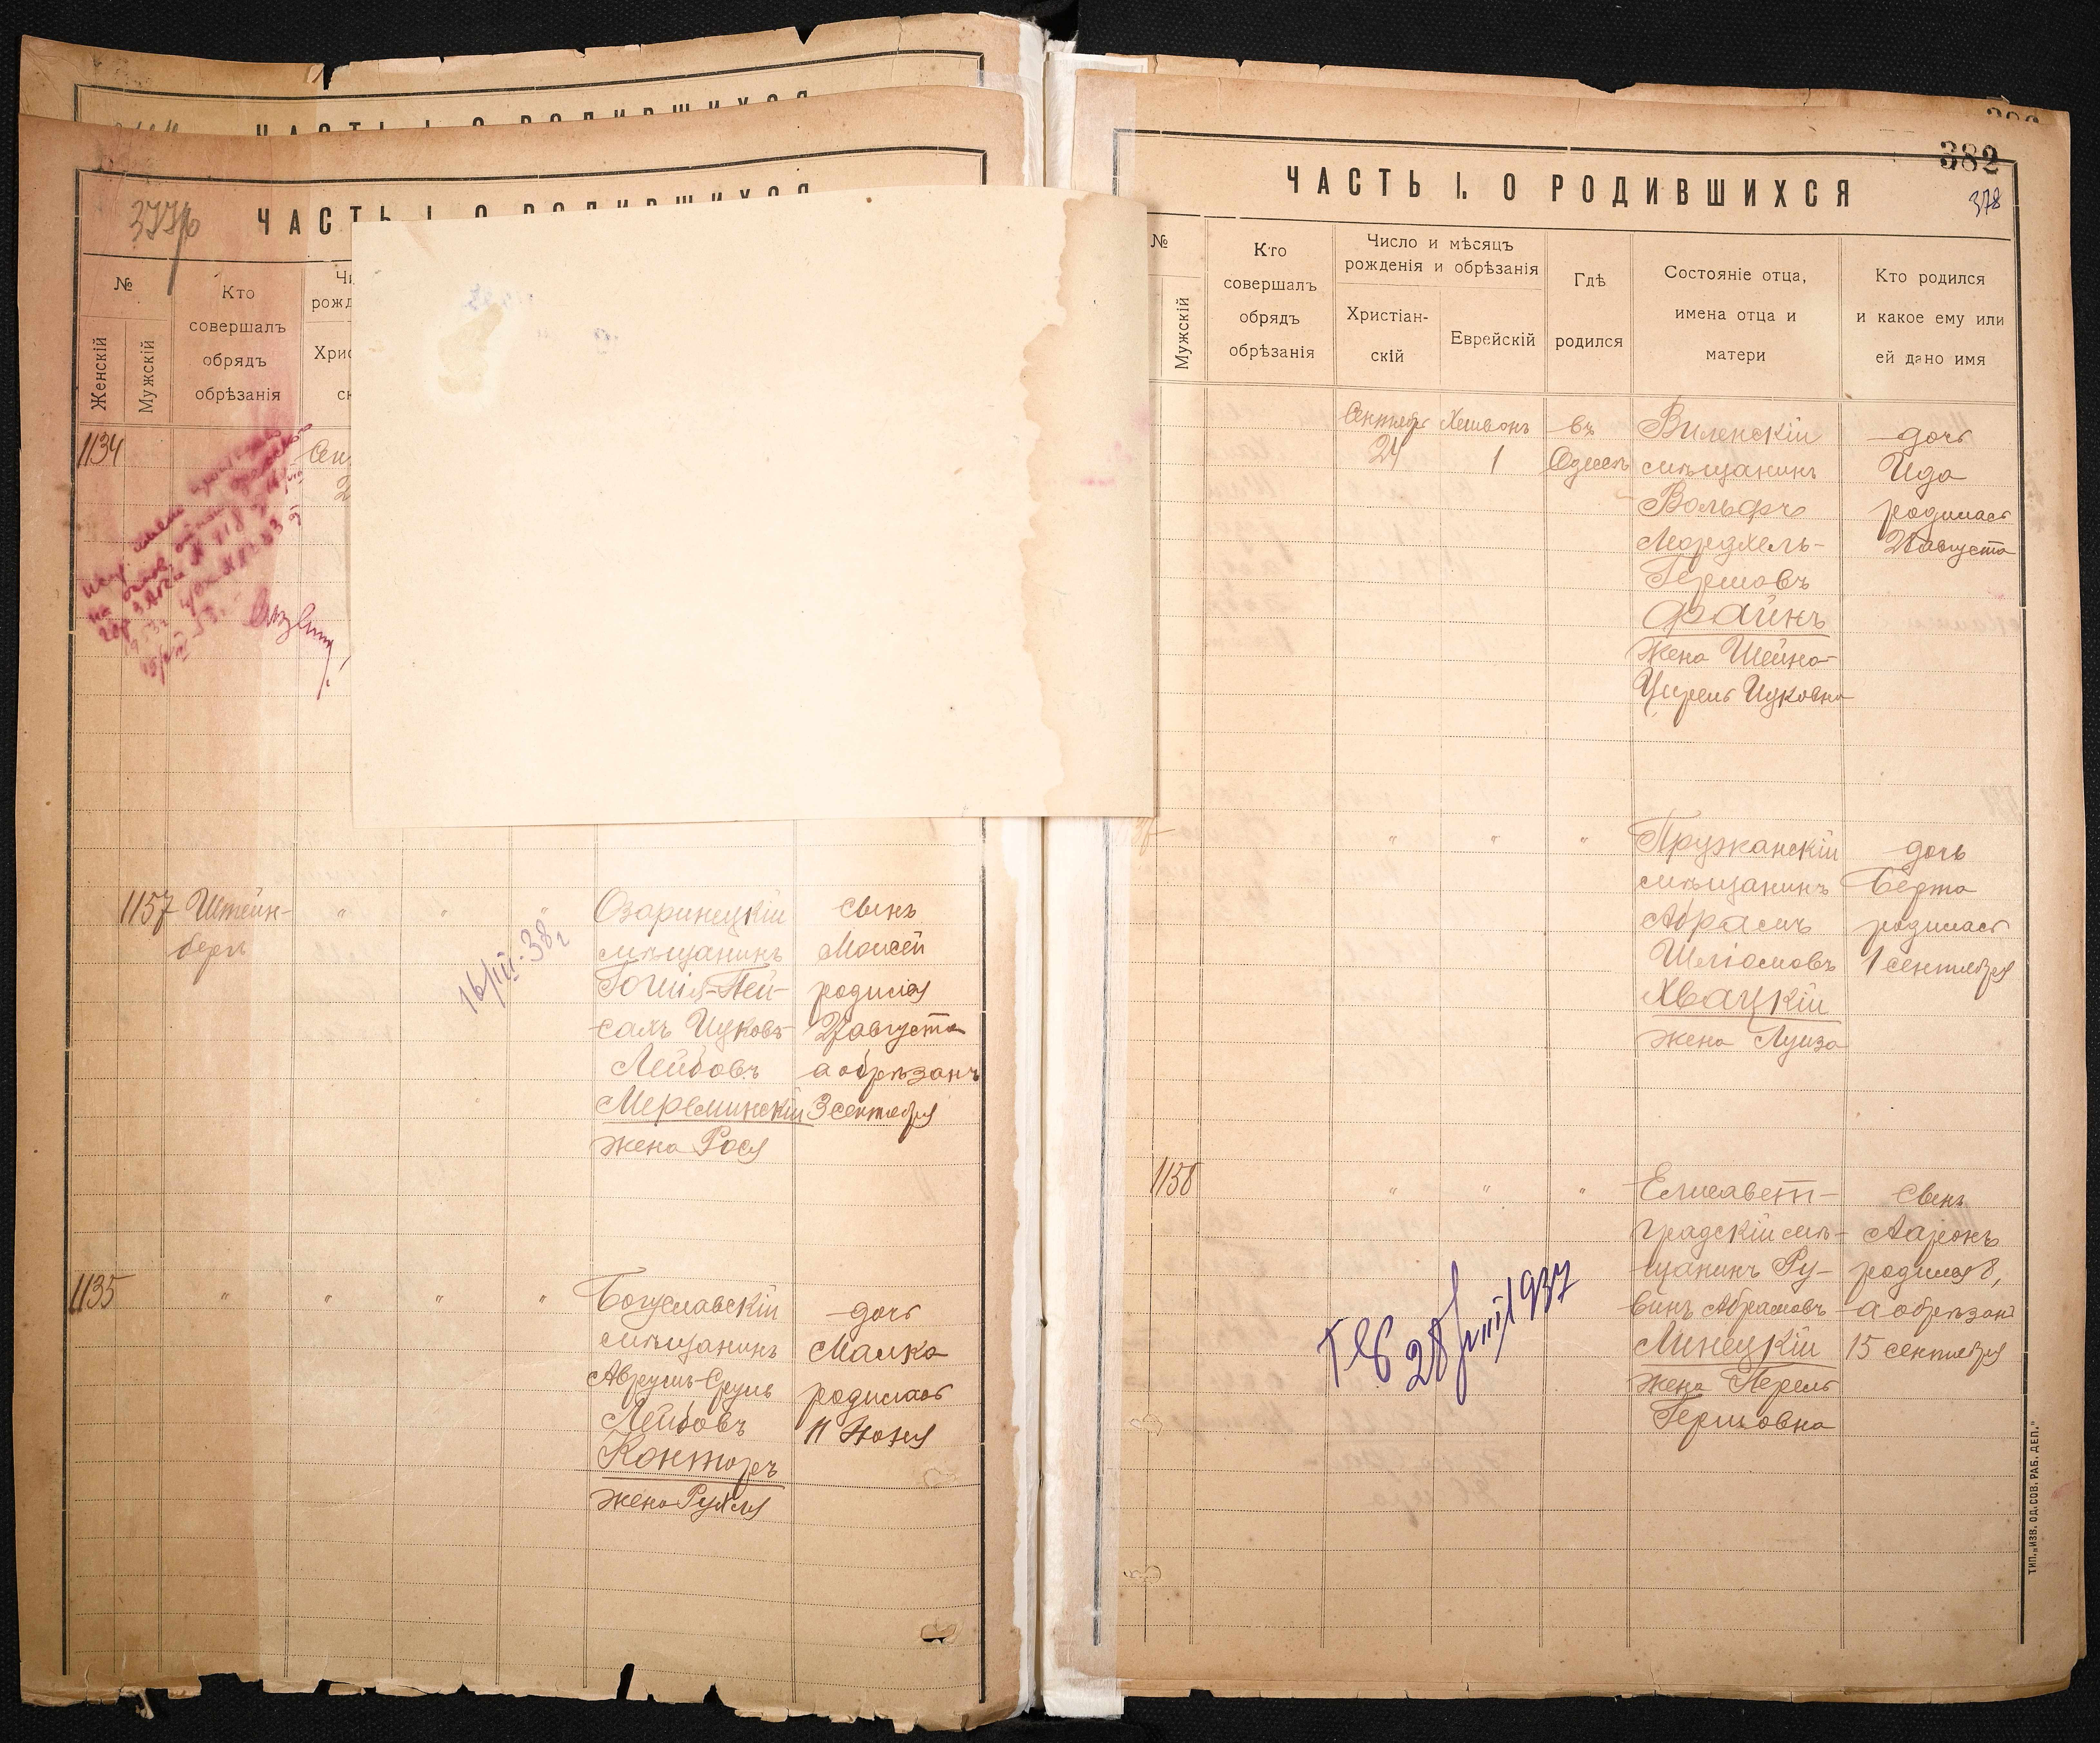 ЧАСТЬ I. О РОДИВШИХСЯ
ЧАСТЬ I. О РОДИВШИХСЯ
№
Женскій
Мужскій
Кто
совершалъ
обрядъ
обрѣзанія
1134
1157 Штейн-
берг
" " "
16/III-38г
Озаринецкій
мѣщанинъ
Гошія-Пей-
сахъ Ицковъ-
Лейбовъ
Мереминскій
жена Рося
сынъ
Моисей
родился
27 августа
а обрѣзанъ
3 сентября
1135
" " " "
Богуславскій
мѣщанинъ
Аврумъ-Сруль
Лейбовъ
Конторъ
жена Рухля
дочь
Малка
родилась
11 Июня
382
378
ЧАСТЬ I. О РОДИВШИХСЯ
№
Мужскій
Кто
совершалъ
обрядъ
обрѣзанія
Число и мѣсяцъ
рожденія и обрѣзанія
Христіан-
скій
Еврейскій
Гдѣ
родился
Состояніе отца,
имена отца и
матери
Кто родился
и какое ему или
ей дано имя
Сентябрь
24
Хешвонъ
1
въ
Одессѣ
Виленскій
мѣщанинъ
Вольфъ
Мордхель-
Гершовъ
Файнъ
жена Шейна-
Цирель Ицковна
дочь
Ида
родилась
августа
" " "
Пружанскій
мѣщанинъ
Абрамъ
Шліомовъ
Хвацкій
жена Луиза
дочь
Берта
родилась
1 сентября
1158
" " "
Елисавет-
градскій мѣ-
щанинъ Ру-
винъ Абрамовъ
Линецкій
жена Перель
Гершовна
сынъ
Ааронъ
родился 8,
а обрѣзанъ
15 сентября
28/VIII 1937
ТИП. „ИЗВ. ОД. СОВ. РАБ. ДЕП."